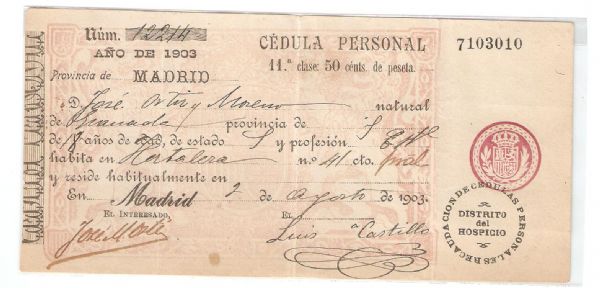 Núm. 12214
AÑO DE 1903
Provincia de MADRID
CÉDULA PERSONAL
11.ª clase: 50 cénts. de peseta.
7103010
D. José Ortiz y Moreno natural
de Granada provincia de
de 18 años de edad, de estado S y profesión
habita en Hortaleza n.º 41 cto. pral
y reside habitualmente en
En Madrid 2 de Agosto de 1903.
EL INTERESADO, EL
José Luis Castillo
RECAUDACION DE CEDULAS PERSONALES
DISTRITO
del
HOSPICIO